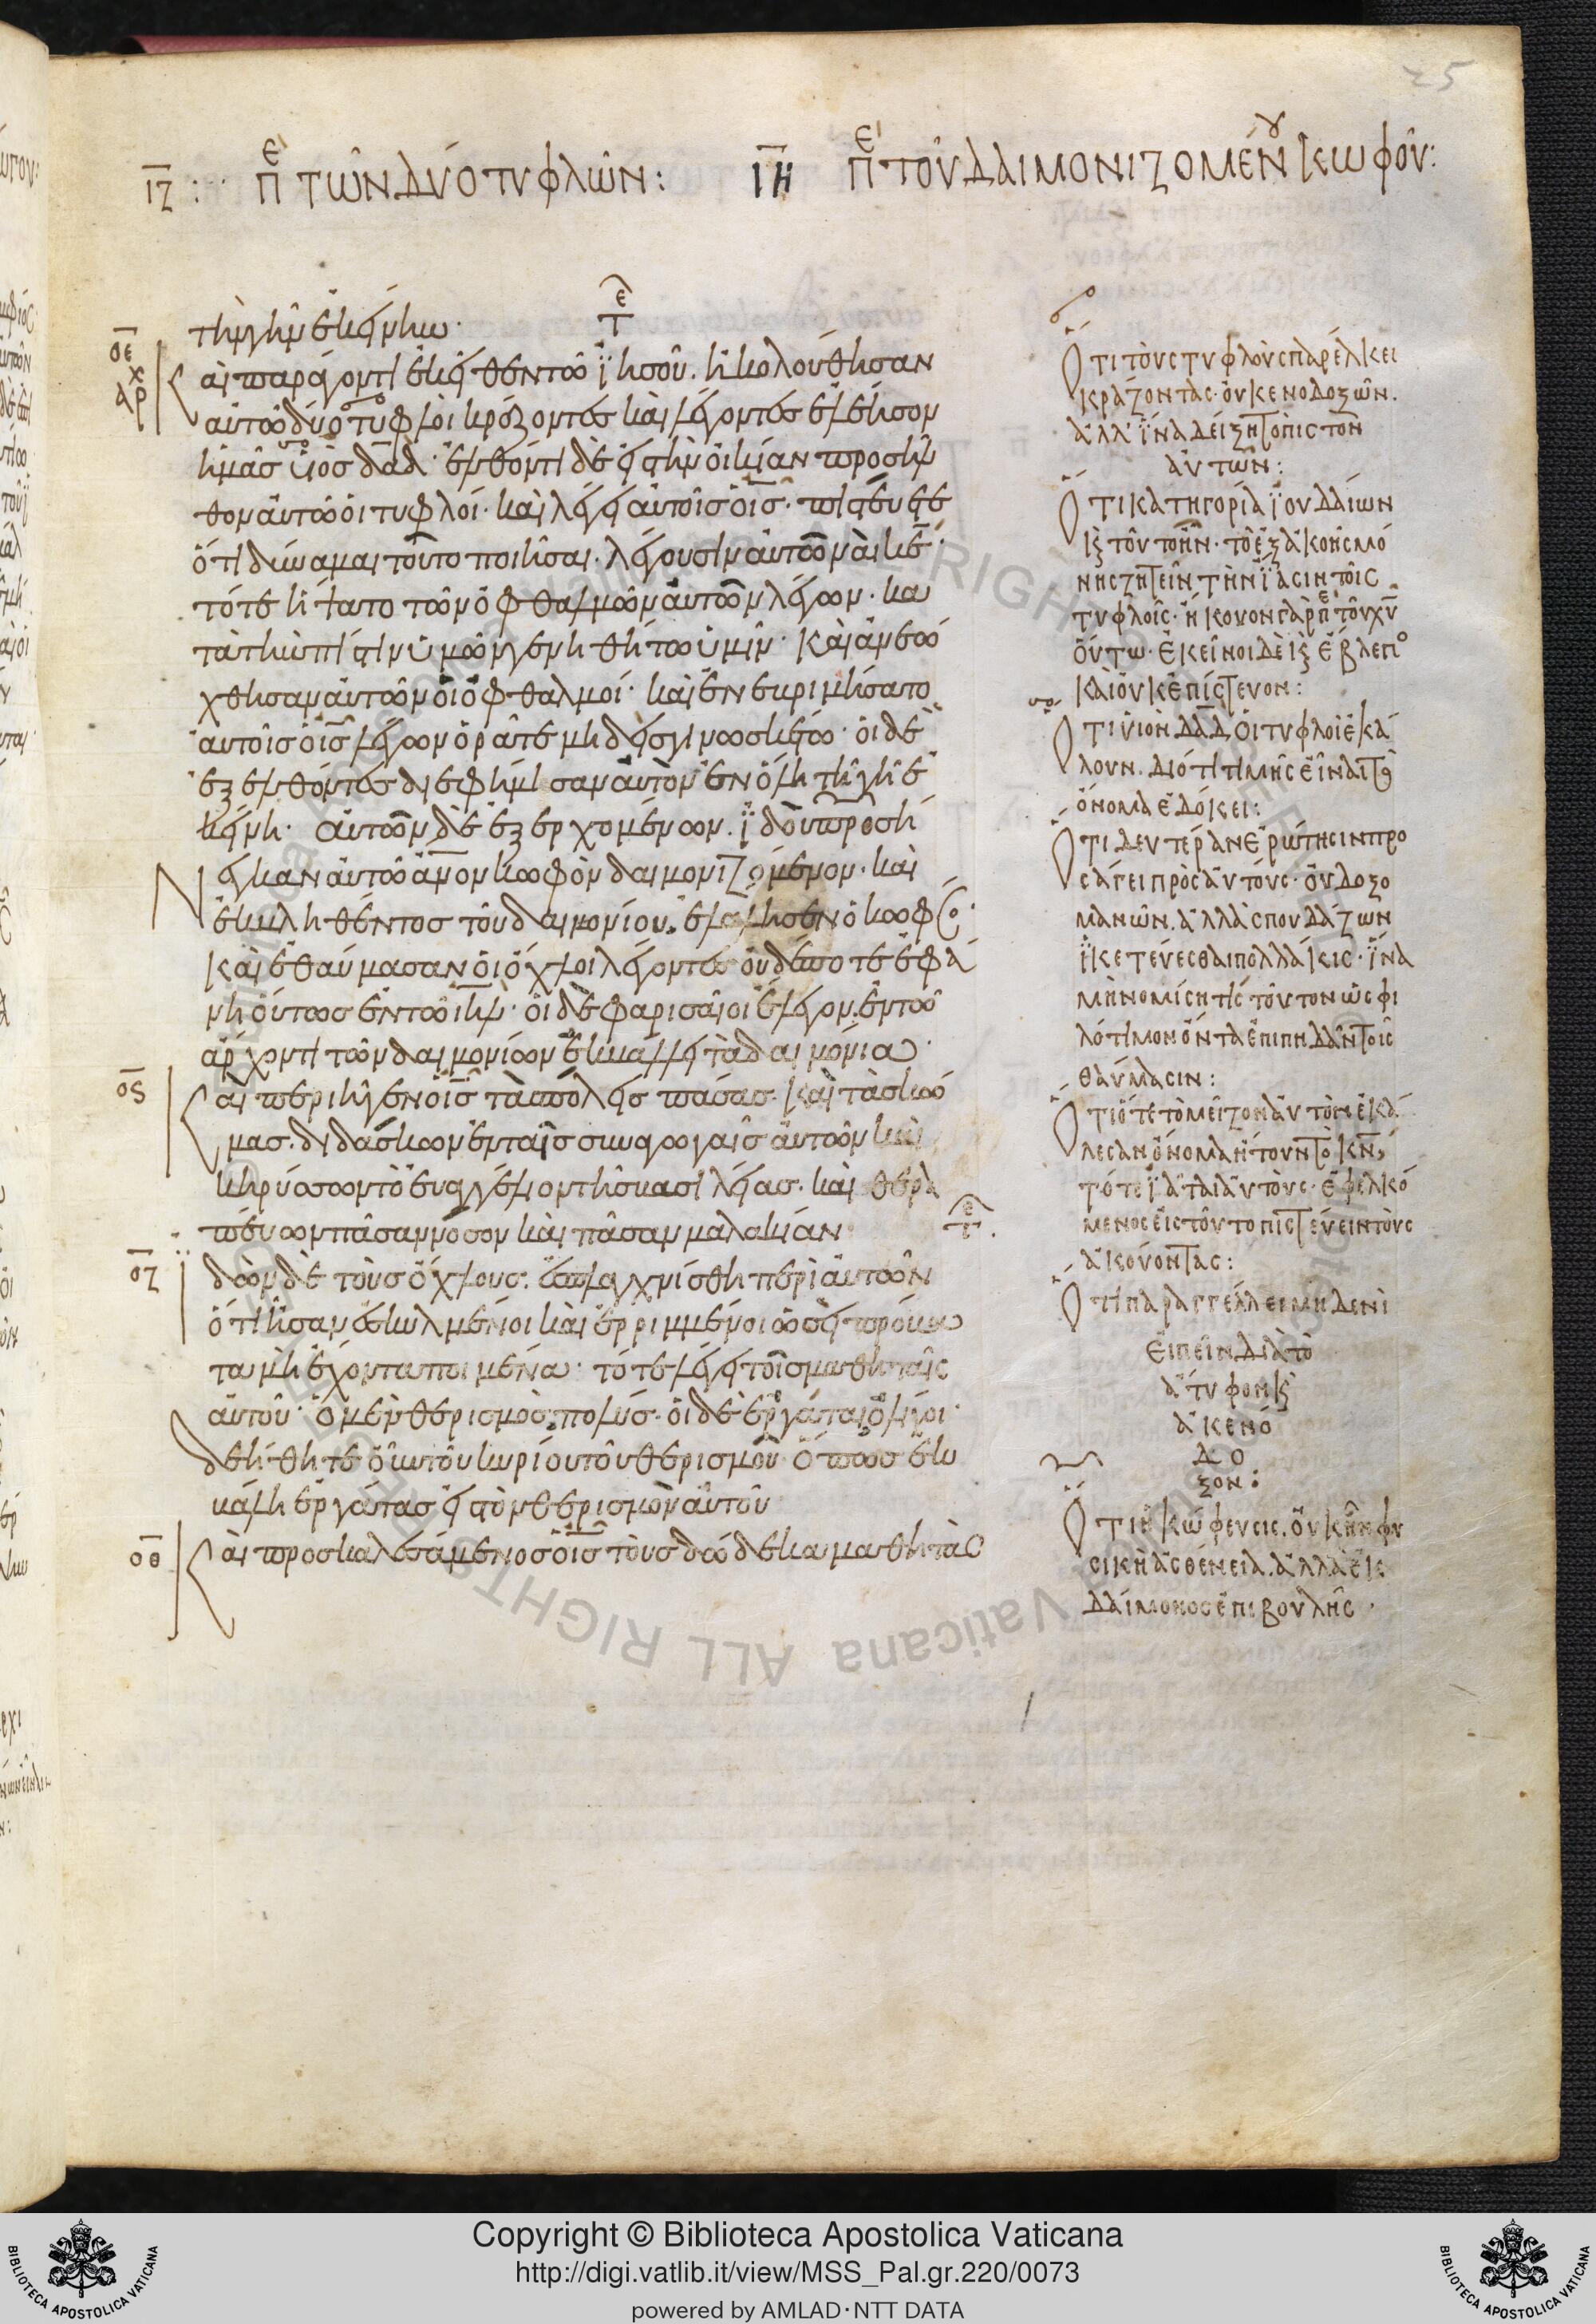 25
ιζ: πε των δύο τυφλῶν: ιη πε τοῦ δαιμονιζομένου κωφοῦ:
τὴν γῆν ἐκείνην·
οε
χ
αρ
τε
Καὶ παράγοντι ἐκεῖθεν τῶ ϊησοῦ. ἠκολούθησαν
αὐτῶ δύο τυφλοὶ κράζοντες καὶ λέγοντες ἐλέησον
ἡμᾶς υἱὸς δαδ· ἐλθόντι δὲ εἰς τὴν οἰκίαν προσῆλ
θον αὐτῶ οἱ τυφλοί· καὶ λέγει αὐτοῖς ὁ ις· πιστεύετε
ὅτι δύναμαι τοῦτο ποιῆσαι· λέγουσιν αὐτῶ ναὶ κε·
τότε ἥψατο τῶν ὀφθαλμῶν αὐτῶν λέγων· κα
τὰ τὴν πίστιν ὑμῶν γενηθήτω ὑμῖν· Καὶ ἀνεώ
χθησαν αὐτῶν οἱ ὀφθαλμοί· καὶ ἐνεβριμήσατο
αὐτοῖς ὁ ις λέγων ὁρᾶτε μηδεὶς γινωσκέτω· οἱ δὲ
ἐξελθόντες διεφήμισαν αὐτὸν ἐν ὅλη τῆ γῆ ἐ
κείνη· αὐτῶν δὲ ἐξερχομένων. ϊδοὺ προσή
νεγκαν αὐτῶ ανον κωφὸν δαιμονιζόμενον· καὶ
ἐκβληθέντος τοῦ δαιμονίου. ἐλάλησεν ὁ κωφός·
Καὶ ἐθαύμασαν οἱ ὄχλοι λέγοντες οὐδέποτε ἐφά
νη οὕτως ἐν τῶ ιηλ· οἱ δὲ φαρισαῖοι ἔλεγον. ἐν τῶ
ἄρχοντι τῶν δαιμονίων ἐκβάλλει τὰ δαιμόνια·
ος
Καὶ περιῆγεν ὁ ις τὰς πόλεις πάσας. καὶ τὰς κώ
μας. διδάσκων ἐν ταῖς συναγωγαῖς αὐτῶν καὶ
κηρύσσων τὸ εὐαγγέλιον τῆς βασιλείας. καὶ θερα
πεύων πᾶσαν νόσον καὶ πᾶσαν μαλακίαν
τε
οζ
Ϊδὼν δὲ τοὺς ὄχλους. ἐσπλαγχνίσθη περὶ αὐτῶν
ὅτι ἦσαν ἐσκυλμένοι καὶ ἐρριμμένοι ὡσεὶ πρόβα
τα μὴ ἔχοντα ποιμένα· τότε λέγει τοῖς μαθηταῖς
αὐτοῦ· Ὁ μὲν θερισμὸς πολύς. οἱ δὲ ἐργάται ὀλίγοι·
δεήθητε οὖν τοῦ κυρίου τοῦ θερισμοῦ ὅπως ἐκ
βάλη ἐργάτας εἰς τὸν θερισμὸν αὐτοῦ
οθ
Καὶ προσκαλεσάμενος ὁ ις τοὺς δώδεκα μαθητὰς
Ὅτι τοὺς τυφλοὺς παρέλκει
κράζοντας· οὐ κενοδοξῶν.
ἀλλ' ϊνα δείξη τὸ πιστὸν
αὐτῶν:
Ὅτι κατηγορία ϊουδαίων
κ τοῦτο ἦν· τὸ ἐξ ἀκοῆς μό
νης ζητεῖν τὴν ϊασιν τοῖς
τυφλοῖς· ἤκουον γὰρ πε τοῦ χυ
οὕτω· ἐκεῖνοι δὲ κ ἔβλεπο
καὶ οὐκ ἐπίστευον:
Ὅτι υἱὸν δαδ οἱ τυφλοὶ ἐκά
λουν. διότι τιμῆς εἶναι τὸ
ὄνομα ἐδόκει:
Ὅτι δευτέραν ἐρώτησιν προ
σάγει πρὸς αὐτούς· οὐ δοξο
μανῶν. ἀλλὰ σπουδάζων
ϊκετεύεσθαι πολλάκις· ϊνα
μὴ νομίση τίς τοῦτον ὡς φι
λότιμον ὄντα ἐπιπηδᾶν τοῖς
θαύμασιν:
Ὅτι ὅτε τὸ μεῖζον αὐτὸν ἐκά
λεσαν ὄνομα ἤτουν τὸ κν,
τότε ϊᾶται αὐτούς· ἐφελκό
μενος εἰς τοῦτο πιστεύειν τοὺς
ἀκούοντας:
Ὅτι παραγγέλλει μηδενὶ
εἰπεῖν διὰ τὸ
ἄτυφον κ
ἀκενό
δο
ξον:
Ὅτι ἡ κώφευσις. οὐκ ἦν φυ
σικὴ ἀσθένεια. ἀλλὰ ἐκ
δαίμονος ἐπιβουλῆς·
Copyright © Biblioteca Apostolica Vaticana
http://digi.vatlib.it/view/MSS_Pal.gr.220/0073
powered by AMLAD·NTT DATA
BIBLIOTECA APOSTOLICA VATICANA
BIBLIOTECA APOSTOLICA VATICANA